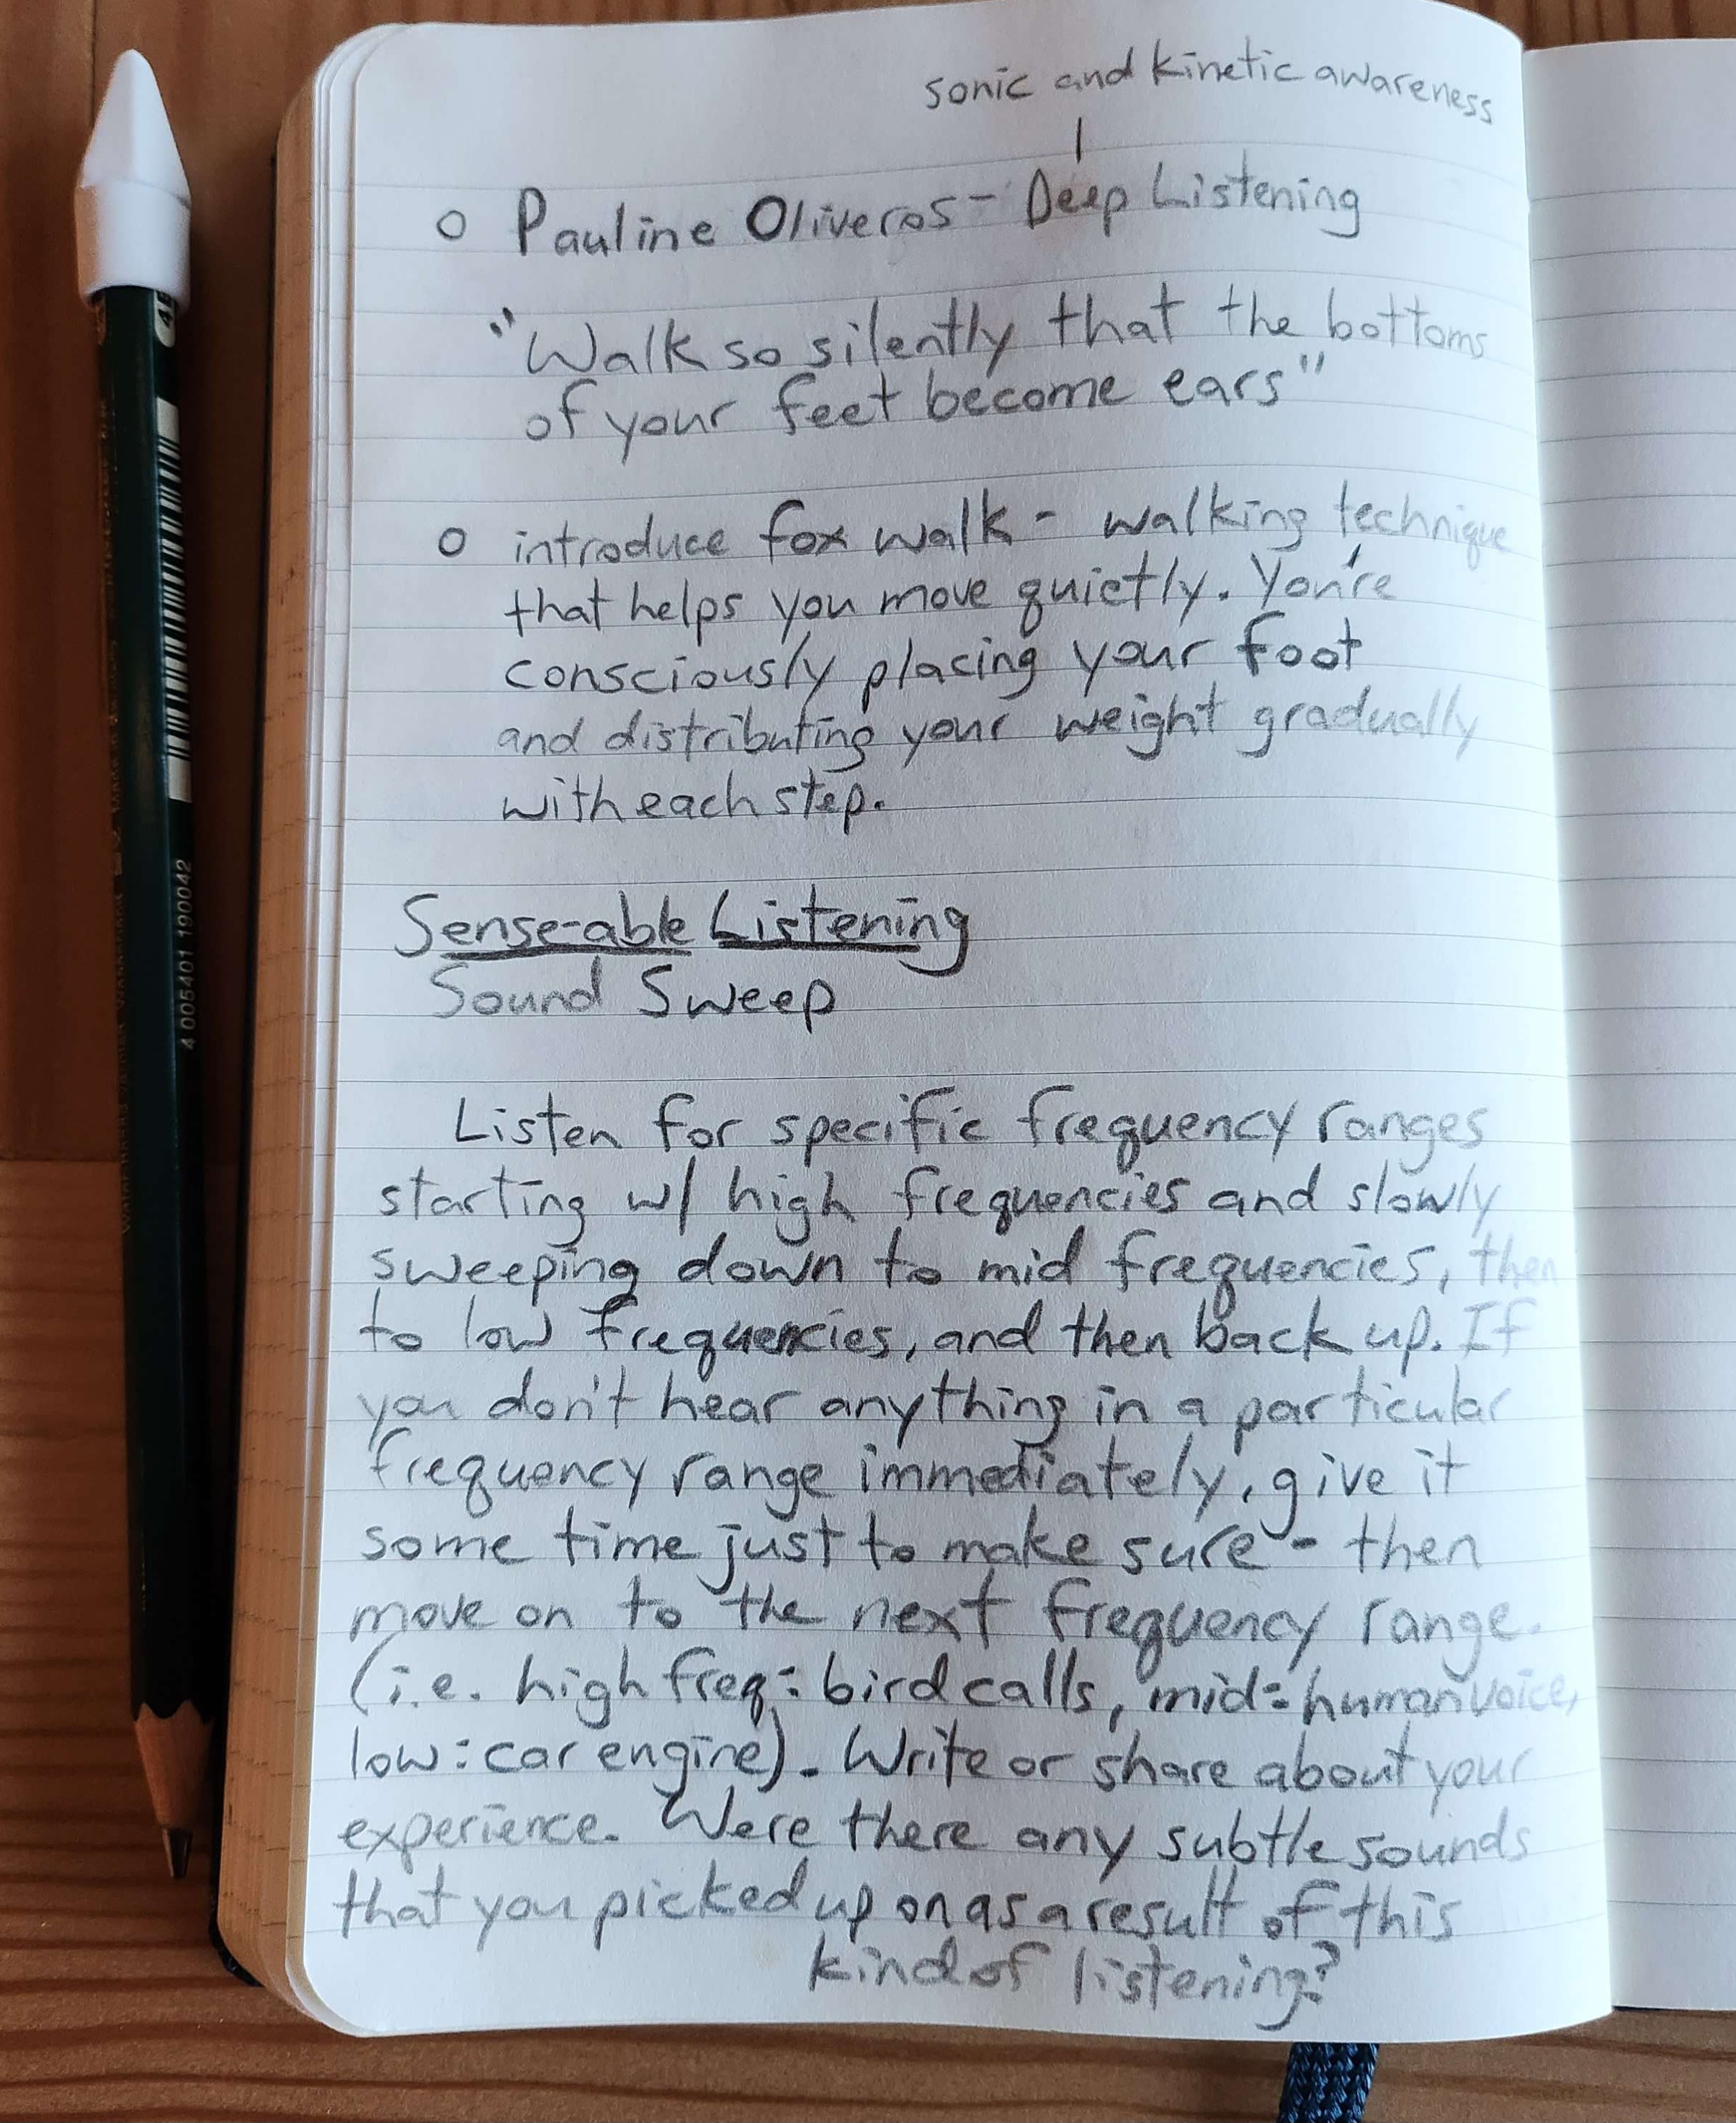 sonic and kinetic awareness
o Pauline Oliveros - Deep Listening
"Walk so silently that the bottoms
of your feet become ears"
o introduce fox walk - walking technique
that helps you move quietly. You're
consciously placing your foot
and distributing your weight gradually
with each step.
Sense-able Listening
Sound Sweep
Listen for specific frequency ranges
starting w/ high frequencies and slowly
sweeping down to mid frequencies, then
to low frequencies, and then back up. If
you don't hear anything in a particular
frequency range immediately, give it
some time just to make sure - then
move on to the next frequency range.
(i.e. high freq: bird calls, mid: human voice,
low: car engine). Write or share about your
experience. Were there any subtle sounds
that you picked up on as a result of this
kind of listening?
4 005401 190042